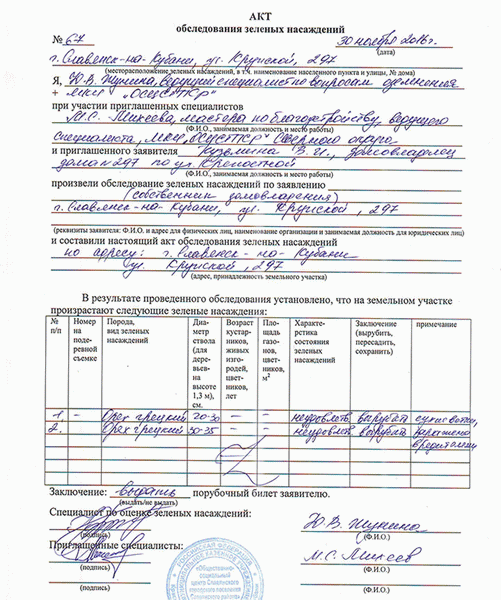 АКТ
обследования зеленых насаждений
№ 67 30 ноября 2016г.
(дата)
г. Славянск-на-Кубани, ул. Крупской, 297
(месторасположение зеленых насаждений, в т.ч. наименование населенного пункта и улицы, № дома)
Я, Ю.В. Жунина, ведущий специалист по вопросам озеленения
при участии приглашенных специалистов
М.С. Михеева, мастера по благоустройству, ведущего
специалиста, округа
(Ф.И.О., занимаемая должность и место работы)
и приглашенного заявителя домовладелец
дома № 297 по ул.
(Ф.И.О., занимаемая должность и место работы)
произвели обследование зеленых насаждений по заявлению
(собственник домовладения)
г. Славянск-на-Кубани, ул. Крупской, 297
(реквизиты заявителя: Ф.И.О. и адрес для физических лиц, наименование организации и занимаемая должность для юридических лиц)
и составили настоящий акт обследования зеленых насаждений
по адресу: г. Славянск-на-Кубани
ул. Крупской, 297
(адрес, принадлежность земельного участка)
В результате проведенного обследования установлено, что на земельном участке
произрастают следующие зеленые насаждения:
№ п/п Номер на поде-ревной съемке Порода, вид зеленых насаждений Диа-метр ствола (для дере-вьев- на высоте 1,3 м), см. Возраст кустар-ников, живых изго-родей, цвет-ников, лет Пло-щадь газо-нов, цвет-ников, м² Характе-ристика состояния зеленых насаждений Заключение (вырубить, пересадить, сохранить) примечание
1. – Орех грецкий 20-30 – – неудовлетв. вырубать
2. Орех грецкий 30-35 – – неудовлетв. вырубать заражено
вредителями
Заключение: выдать порубочный билет заявителю.
(выдать/не выдать)
Специалист по оценке зеленых насаждений:
Ю.В. Жунина
(подпись) (Ф.И.О.)
Приглашенные специалисты:
М.С. Михеев
(подпись) (Ф.И.О.)
(подпись) (Ф.И.О.)